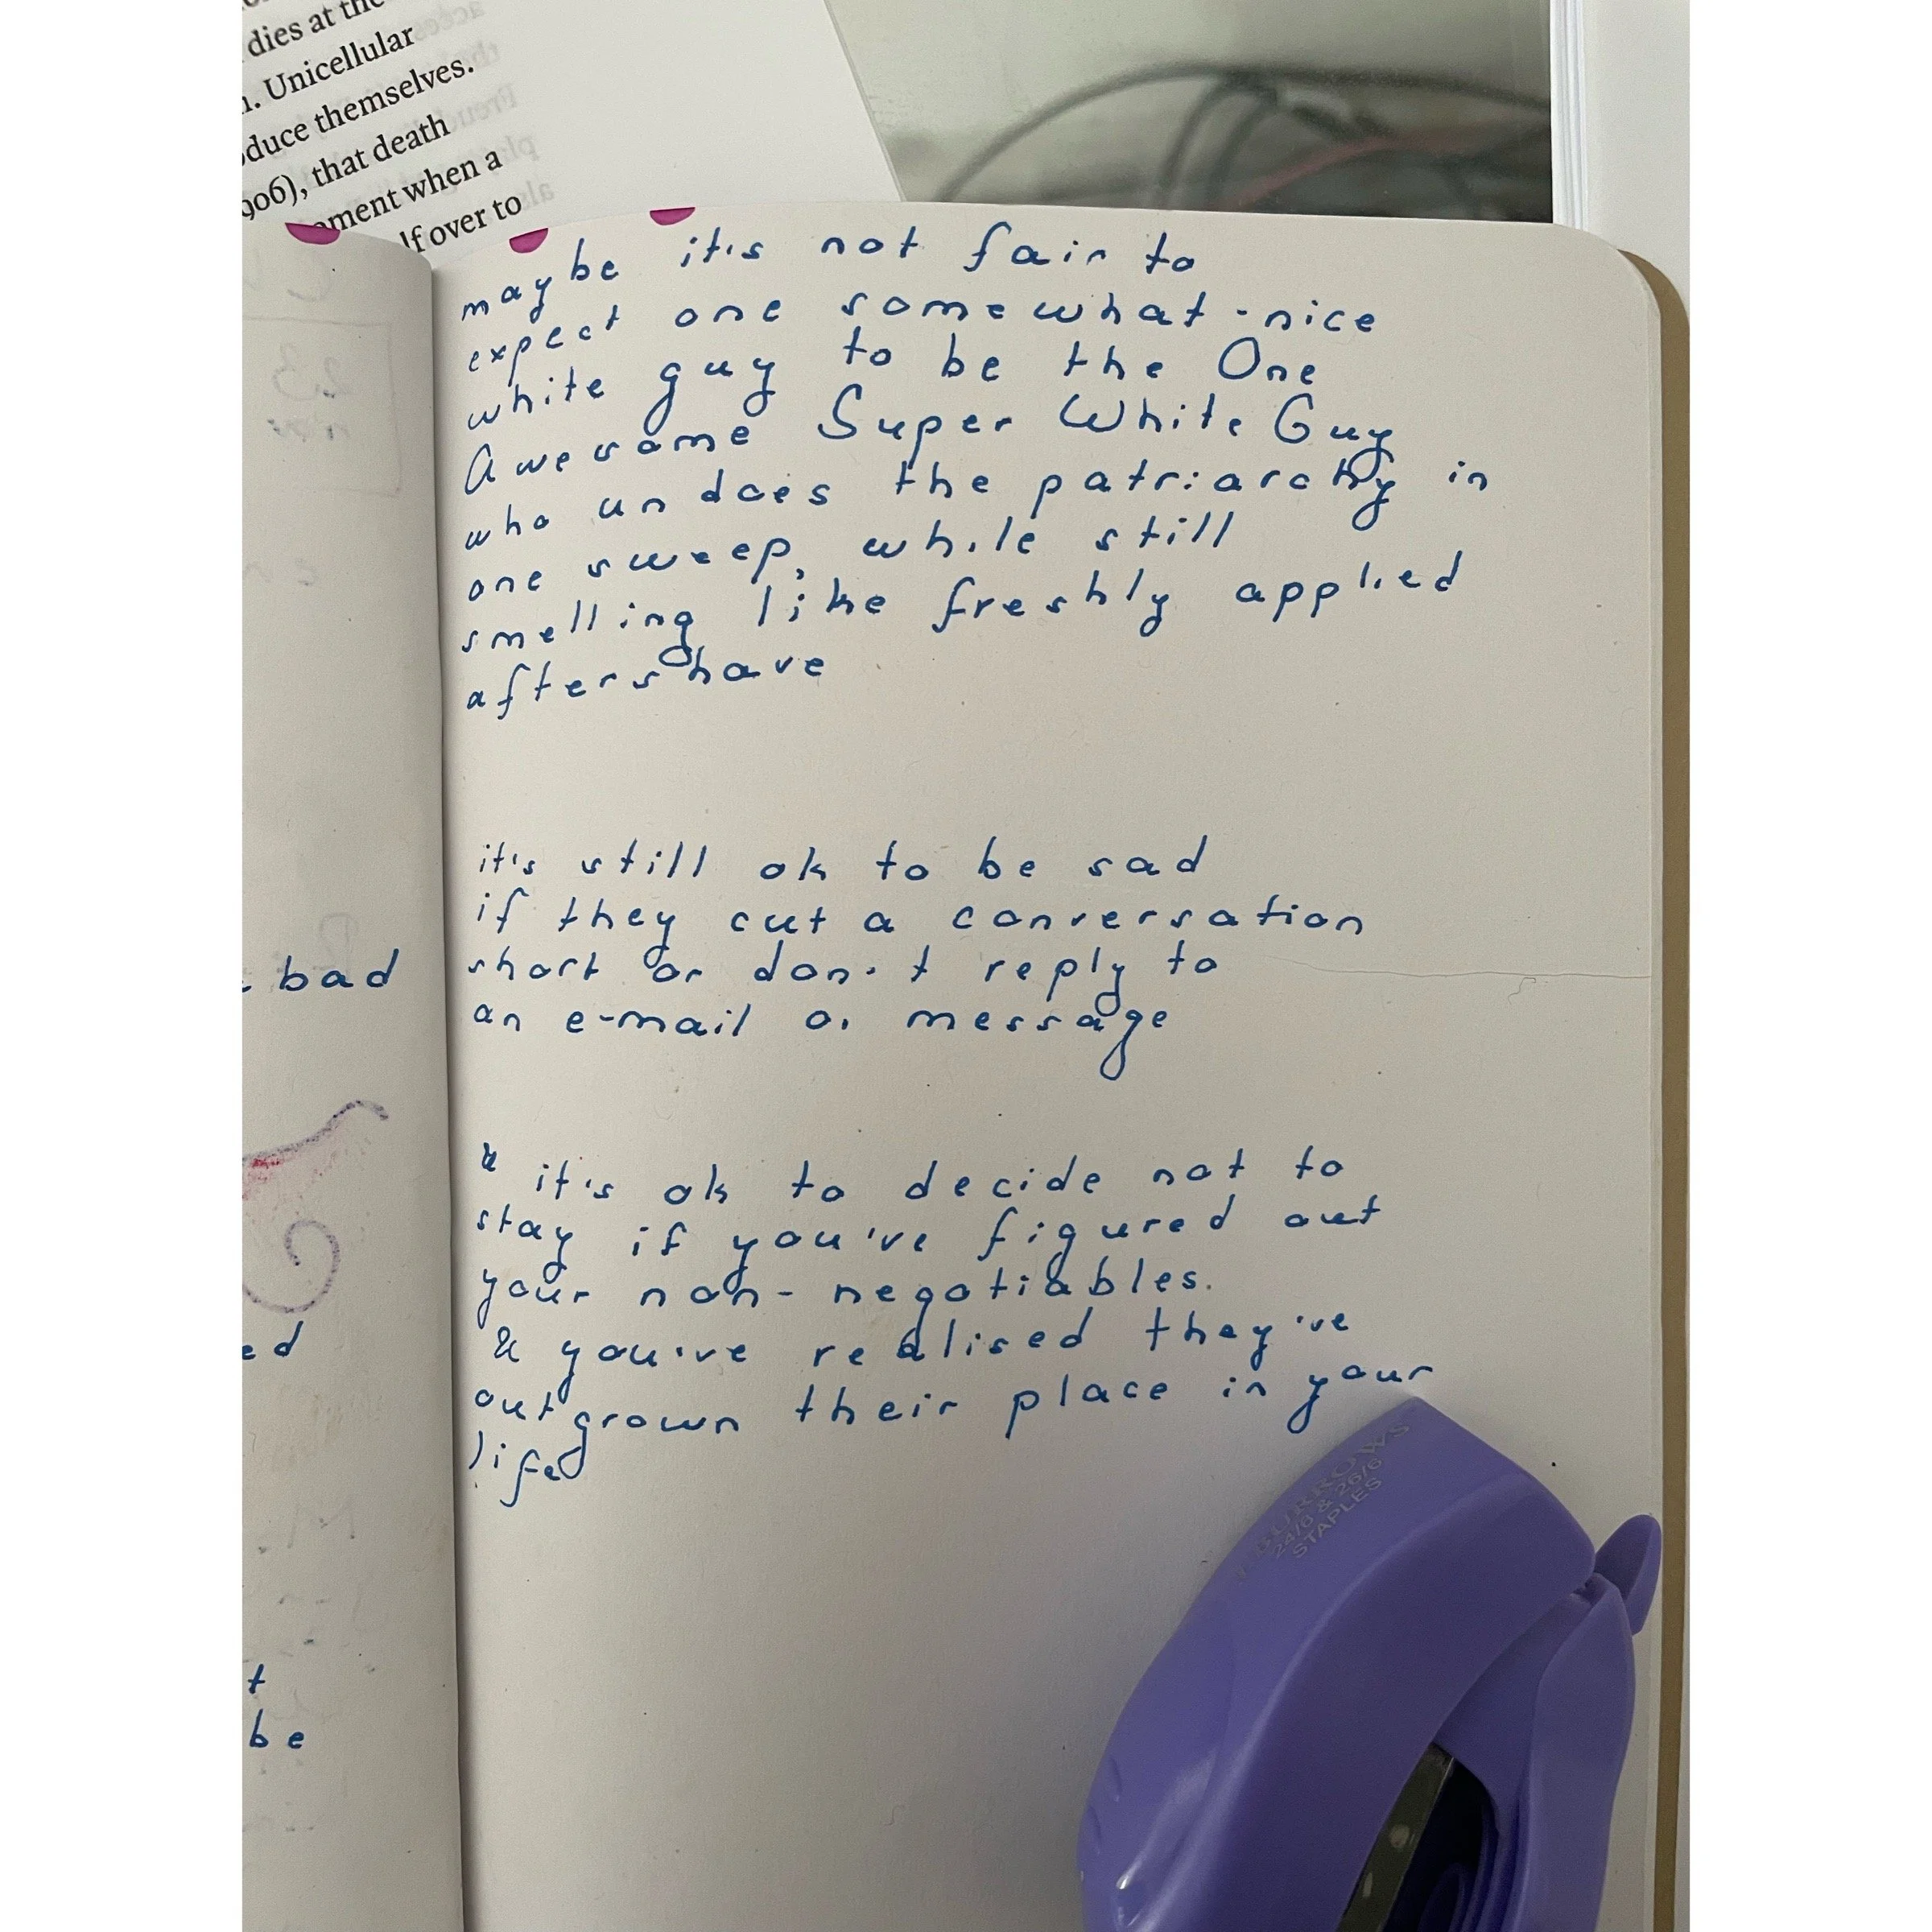 dies at the
. Unicellular
duce themselves.
906), that death
oment when a
lf over to
maybe it's not fair to
expect one somewhat-nice
white guy to be the One
Awesome Super White Guy
who undoes the patriarchy in
one sweep, while still
smelling like freshly applied
aftershave
it's still ok to be sad
if they cut a conversation
short or don't reply to
an e-mail or message
& it's ok to decide not to
stay if you've figured out
your non-negotiables.
& you've realised they've
outgrown their place in your
life
bad
ed
t
be
BURROWS
24/6 & 26/6
STAPLES